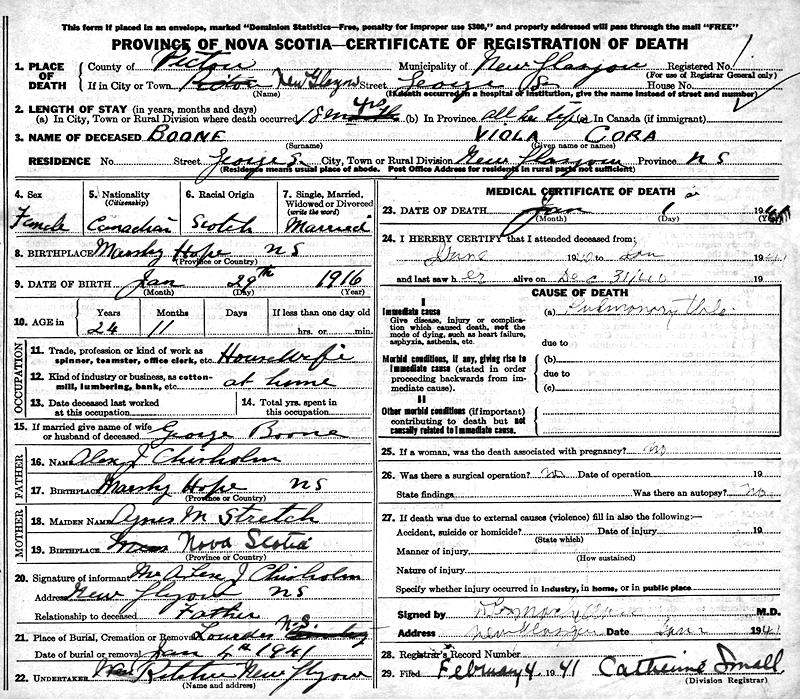 This form if placed in an envelope, marked "Dominion Statistics—Free, penalty for improper use $300," and properly addressed will pass through the mail "FREE"
PROVINCE OF NOVA SCOTIA—CERTIFICATE OF REGISTRATION OF DEATH
1. PLACE OF DEATH County of Pictou Municipality of New Glasgow Registered No.
(For use of Registrar General only)
If in City or Town New Glasgow Street George St House No.
(Name) (If death occurred in a hospital or institution, give the name instead of street and number)
2. LENGTH OF STAY (in years, months and days)
(a) In City, Town or Rural Division where death occurred 18 yrs (b) In Province all her life (c) In Canada (if immigrant)
3. NAME OF DECEASED BOONE VIOLA CORA
(Surname) (Given name or names)
RESIDENCE No. Street George St. City, Town or Rural Division New Glasgow Province NS
(Residence means usual place of abode. Post Office Address for residents in rural parts not sufficient)
4. Sex Female
5. Nationality (Citizenship) Canadian
6. Racial Origin Scotch
7. Single, Married, Widowed or Divorced (write the word) Married
8. BIRTHPLACE Marshy Hope NS
(Province or Country)
9. DATE OF BIRTH Jan 29th 1916
(Month) (Day) (Year)
10. AGE in Years Months Days If less than one day old
24 11 hrs. or min.
OCCUPATION
11. Trade, profession or kind of work as spinner, teamster, office clerk, etc. Housewife
12. Kind of industry or business, as cotton-mill, lumbering, bank, etc. at home
13. Date deceased last worked at this occupation
14. Total yrs. spent in this occupation
15. If married give name of wife or husband of deceased George Boone
FATHER
16. NAME Alex J Chisholm
17. BIRTHPLACE Marshy Hope NS
(Province or Country)
MOTHER
18. MAIDEN NAME Agnes M Stretch
19. BIRTHPLACE Nova Scotia
(Province or Country)
20. Signature of informant Mr Alex J Chisholm
Address New Glasgow NS
Relationship to deceased Father
21. Place of Burial, Cremation or Removal Lourdes N.S.
Date of burial or removal Jan 4th 1941
22. UNDERTAKER Ritchie New Glasgow
(Name and address)
MEDICAL CERTIFICATE OF DEATH
23. DATE OF DEATH Jan 1 1941
(Month) (Day) (Year)
24. I HEREBY CERTIFY that I attended deceased from:
June 1940 to Jan 1941
and last saw her alive on Dec 31/40 19
CAUSE OF DEATH
I
Immediate cause
Give disease, injury or complication which caused death, not the mode of dying, such as heart failure, asphyxia, asthenia, etc.
(a) Pulmonary Tbc.
due to
Morbid conditions, if any, giving rise to immediate cause (stated in order proceeding backwards from immediate cause).
(b)
due to
(c)
II
Other morbid conditions (if important) contributing to death but not causally related to immediate cause.
25. If a woman, was the death associated with pregnancy? no
26. Was there a surgical operation? no Date of operation 19
State findings Was there an autopsy? no
27. If death was due to external causes (violence) fill in also the following:—
Accident, suicide or homicide? Date of injury 19
(State which)
Manner of injury
(How sustained)
Nature of injury
Specify whether injury occurred in industry, in home, or in public place
Signed by M.D.
Address New Glasgow Date Jan 1941
28. Registrar's Record Number
29. Filed February 4 1941 Catherine Small
(Division Registrar)